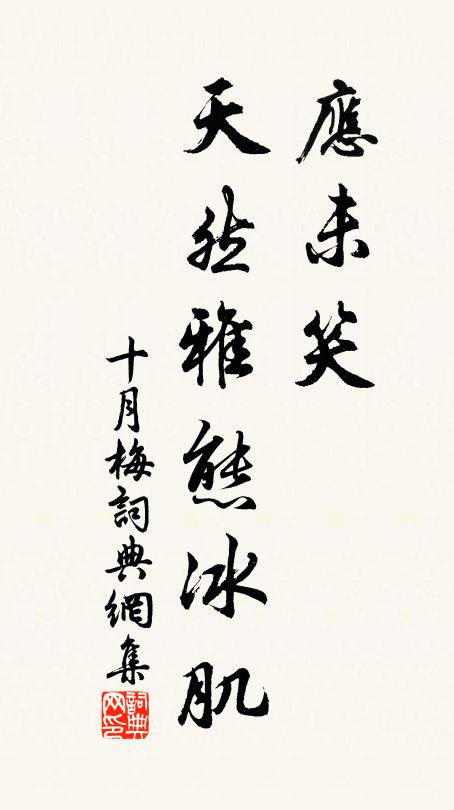 應未笑
天然雅態冰肌
十月梅詞典網集
詞典网印